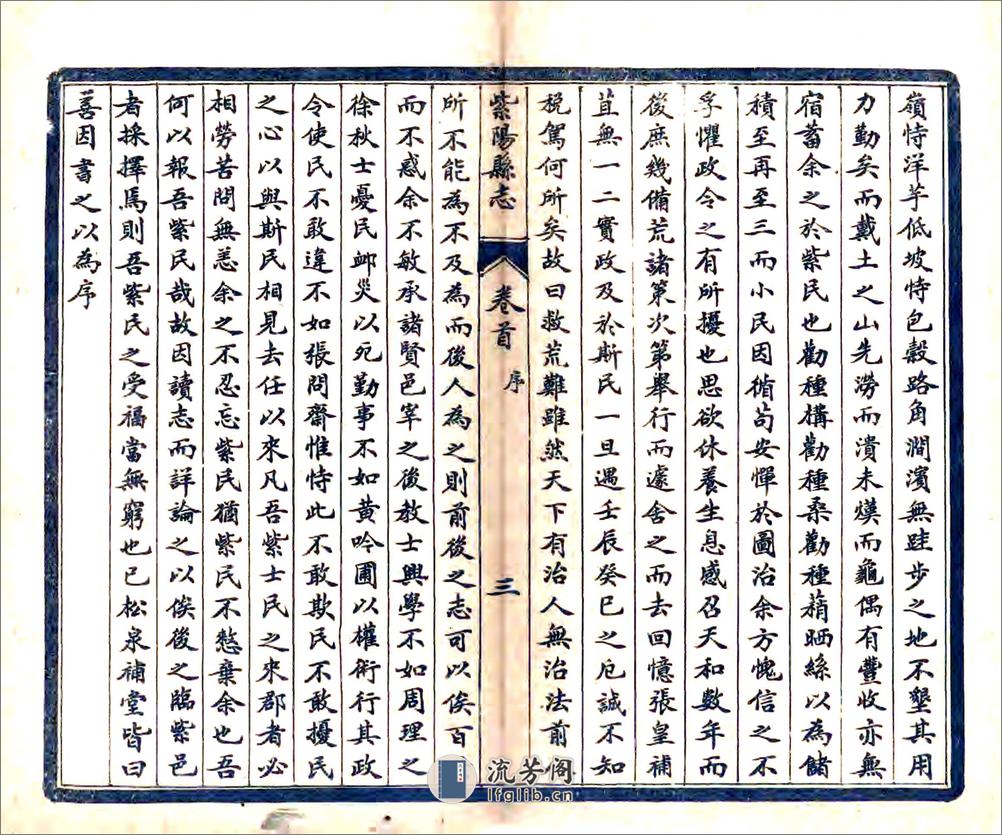 嶺恃洋芋低坡恃包穀路角澗濱無跬步之地不墾其用
力勤矣而戴土之山先澇而潰未熯而龜偶有豐收亦無
宿蓄余之於紫民也勸種構勸種桑勸種蒱晒絲以為儲
積至再至三而小民因循苟安憚於圖治余方愧信之不
孚懼政令之有所擾也思欲休養生息感召天和數年而
後庶幾備荒諸策次第舉行而遽舍之而去回憶張皇補
苴無一二實政及於斯民一旦遇壬辰癸巳之厄誠不知
稅駕何所矣故曰救荒難雖然天下有治人無治法前
紫陽縣志
卷首
序
三
所不能為不及為而後人為之則前後之志可以俟百
而不惑余不敏承諸賢邑宰之後教士興學不如周理之
徐秋士憂民卹災以死勤事不如黃吟圃以權術行其政
令使民不敢違不如張問齋惟恃此不敢欺民不敢擾民
之心以與斯民相見去任以來凡吾紫士民之來郡者必
相勞苦問無恙余之不忍忘紫民猶紫民不憖棄余也吾
何以報吾紫民哉故因讀志而詳論之以俟後之臨紫邑
者採擇焉則吾紫民之受福當無窮也已松泉補堂皆曰
善因書之以為序
流芳阁
lfglib.cn